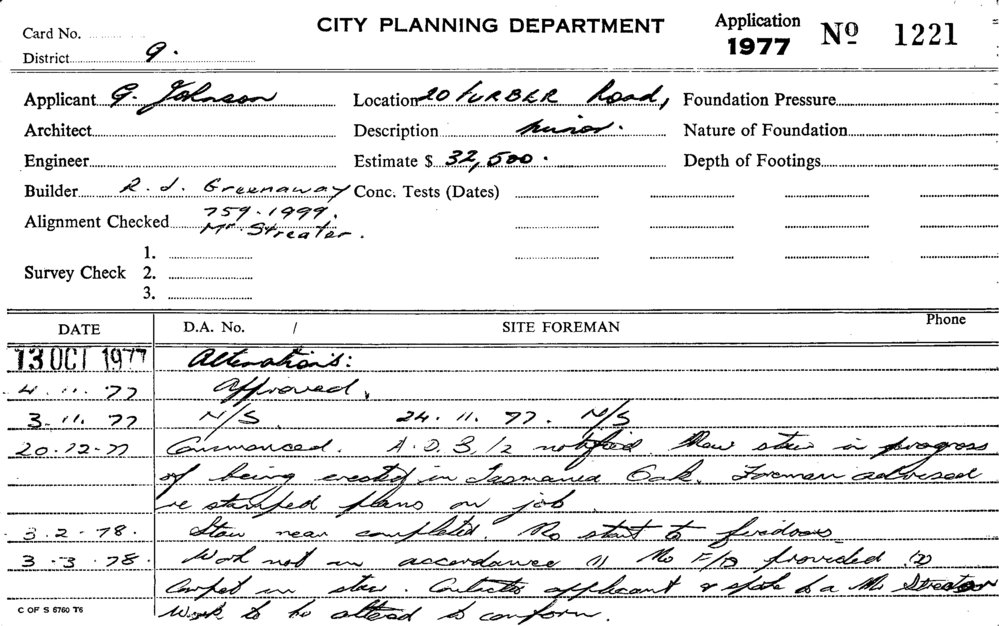 CITY PLANNING DEPARTMENT
Application 1977 Nº 1221
Card No.
District 9.
Applicant G. Johnson
Location 20 FURBER Road,
Foundation Pressure
Architect
Description minor.
Nature of Foundation
Engineer
Estimate $ 32,500.
Depth of Footings
Builder R. J. Greenaway
Conc. Tests (Dates)
Alignment Checked 759-1999.
Mr Streater.
Survey Check 1.
2.
3.
DATE D.A. No. / SITE FOREMAN Phone
13 OCT 1977 Alterations:
4. 11. 77 Approved.
3. 11. 77 N/S 24. 11. 77. N/S
20-12-77 Commenced. A.O.B. 1/2 notified. New stair in progress
of being erected in Tasmania Oak. Foreman advised
re stamped plans on job.
3-2-78. Stair near completed. No start to firedoors
3-3-78. Work not in accordance (1) No F/D provided (2)
Carpet in stair. Contacted applicant & spoke to a Mr Streater
Work to be altered to conform.
C OF S 6760 T6